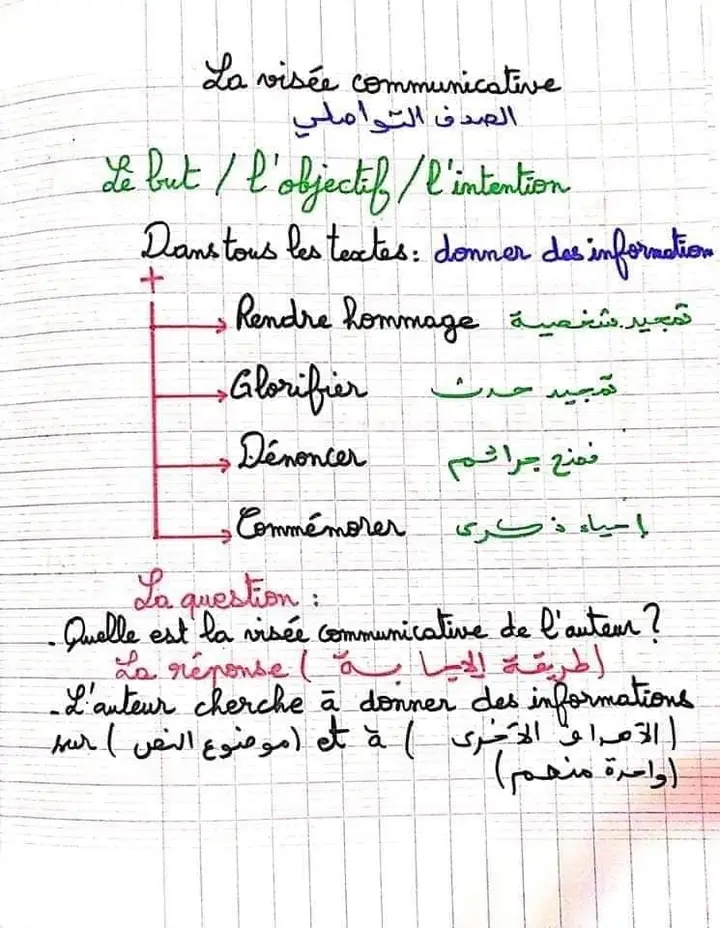 La visée communicative
الهدف التواصلي
Le but / l'objectif / l'intention
Dans tous les textes : donner des information
+
Rendre hommage تمجيد شخصية
Glorifier تمجيد حدث
Dénoncer فضح جرائم
Commémorer إحياء ذكرى
La question :
- Quelle est la visée communicative de l'auteur ?
La réponse (طريقة الإجابة)
- L'auteur cherche à donner des informations
sur (موضوع النص) et à (الأهداف الأخرى
(واحدة منهم)